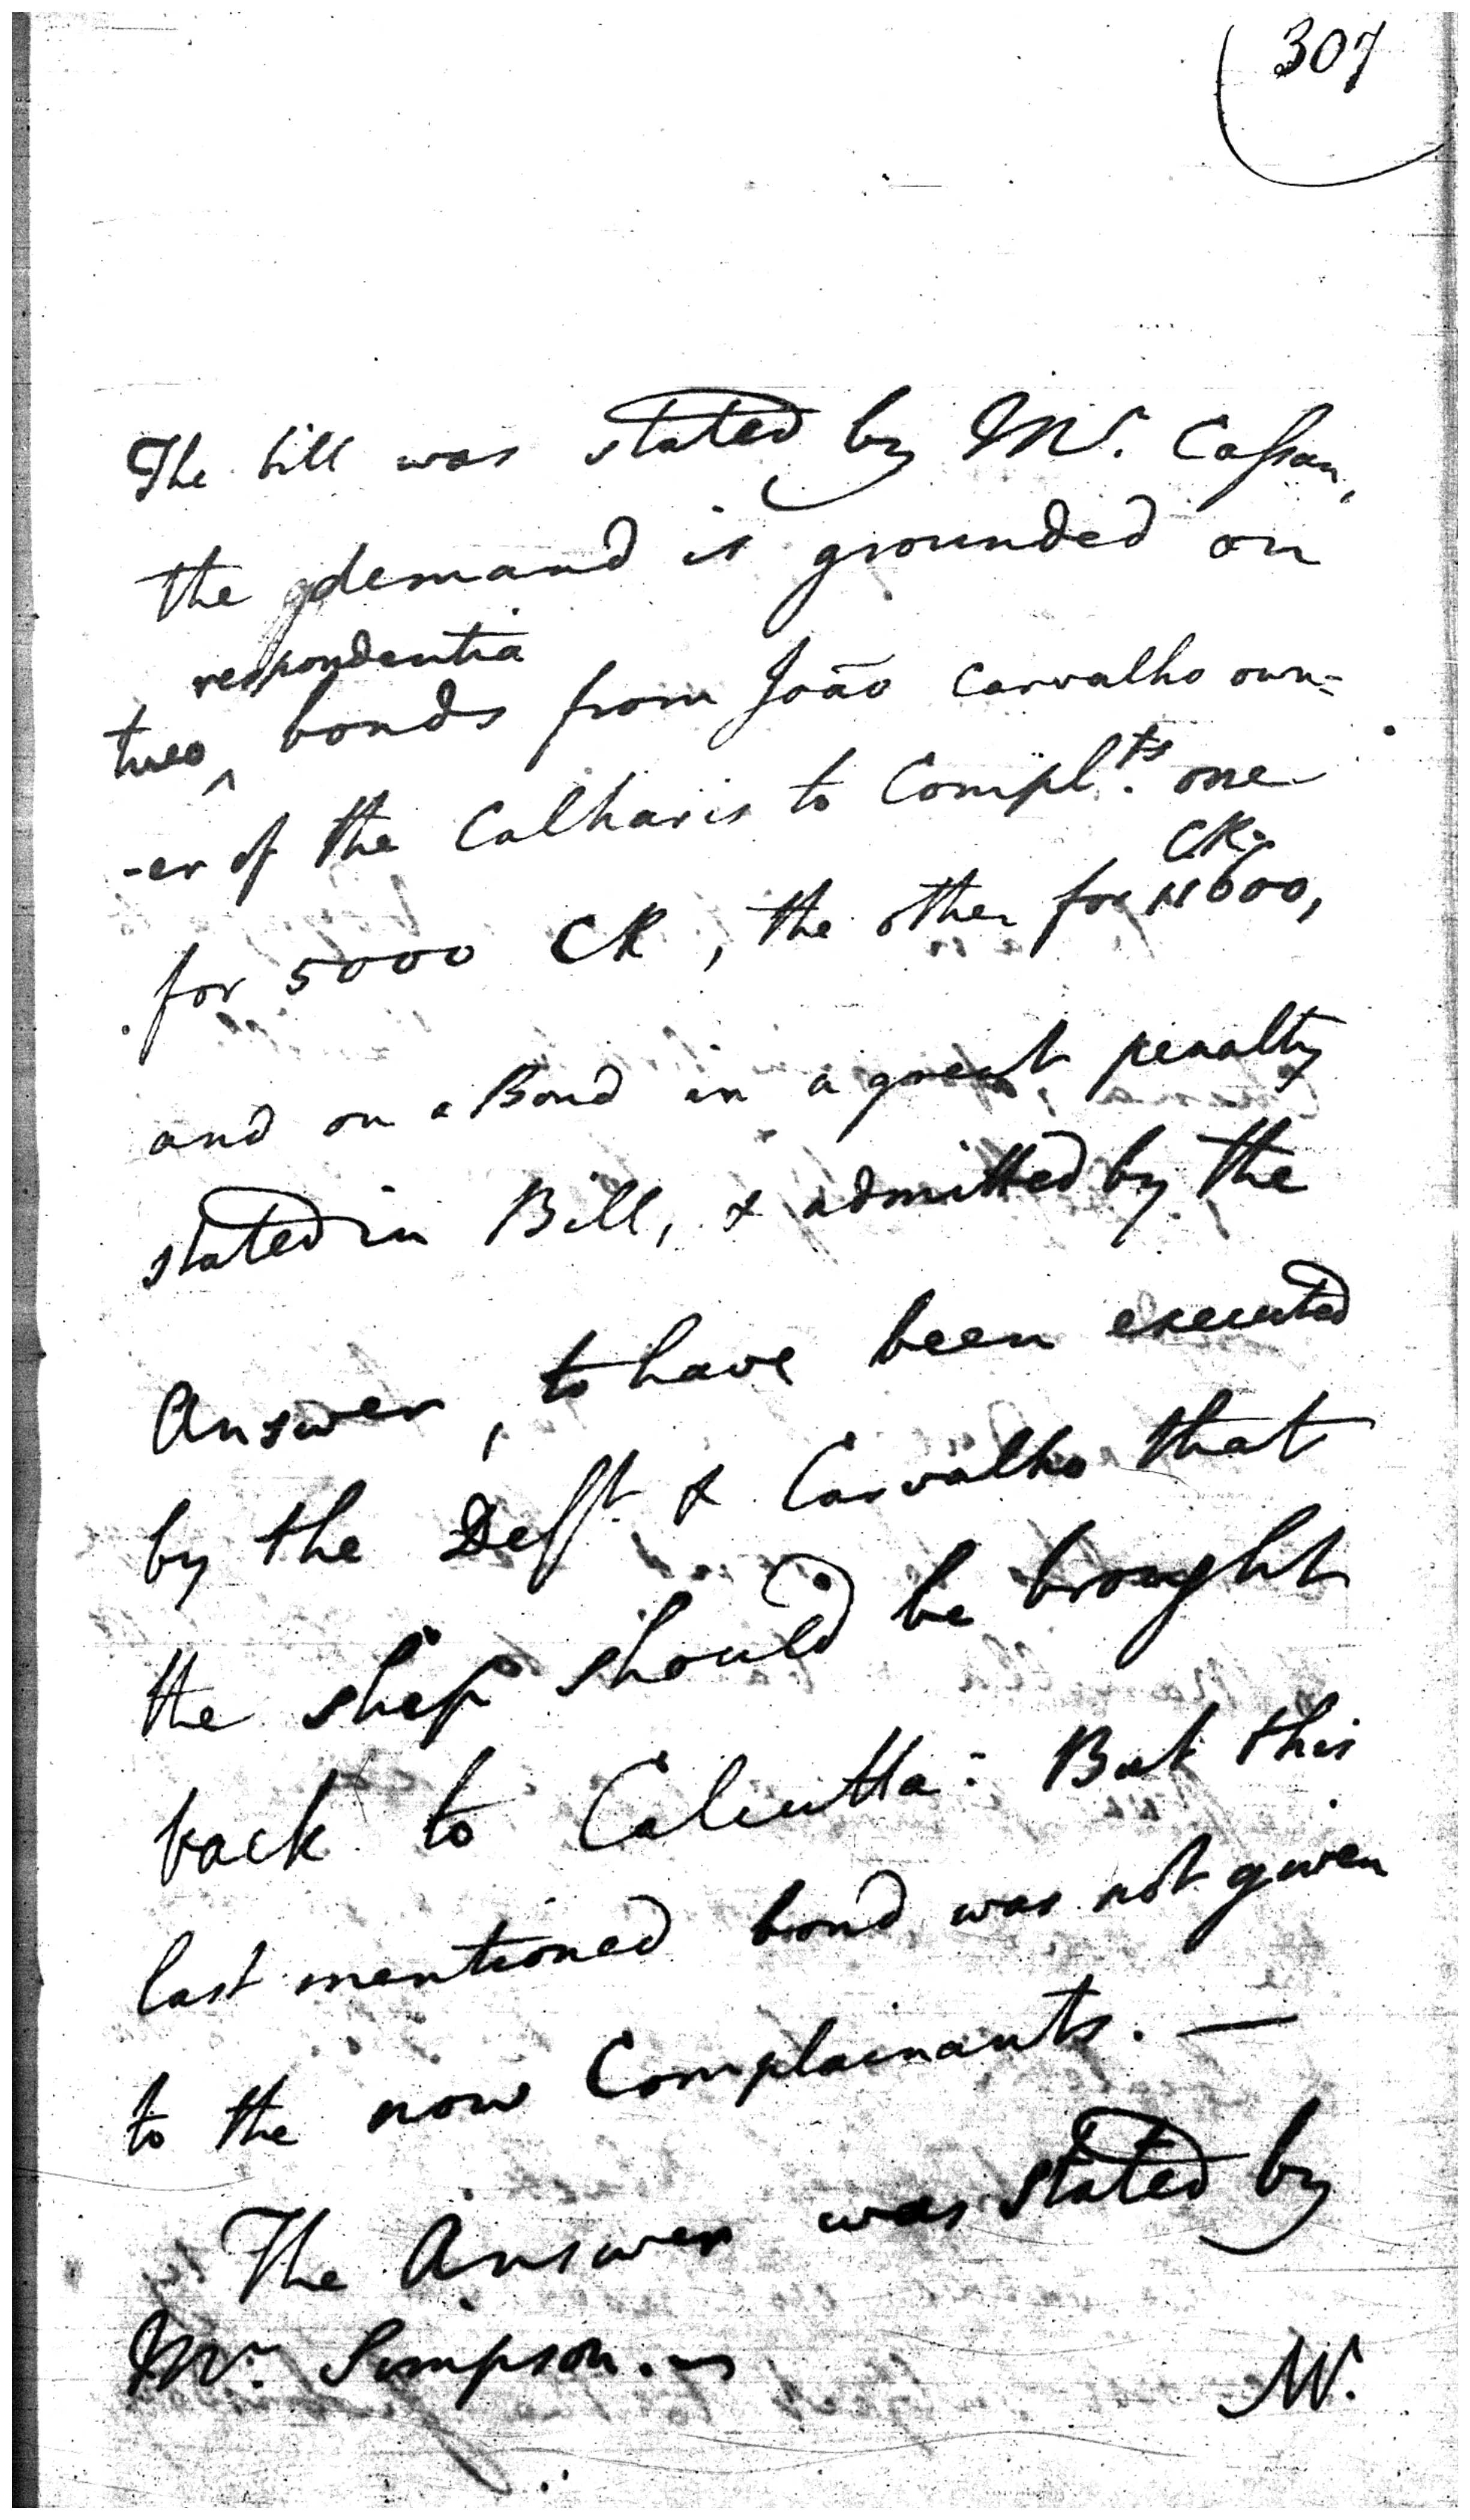 307
The bill was stated by Mr. Cassan,
the demand is grounded on
respondentia
two ^ bonds from João Carvalho own=
-er of the Calharis to Compl.ts one
CR.
for 5000 CR, the other for 11600,
and on a Bond in a great penalty
stated in Bill, & admitted by the
Answer, to have been executed
by the Deft & Carvalho that
the ship should be brought
back to Calcutta: But this
last mentioned bond was not given
to the now Complainants. —
The Answer was stated by
Mr. Simpson.